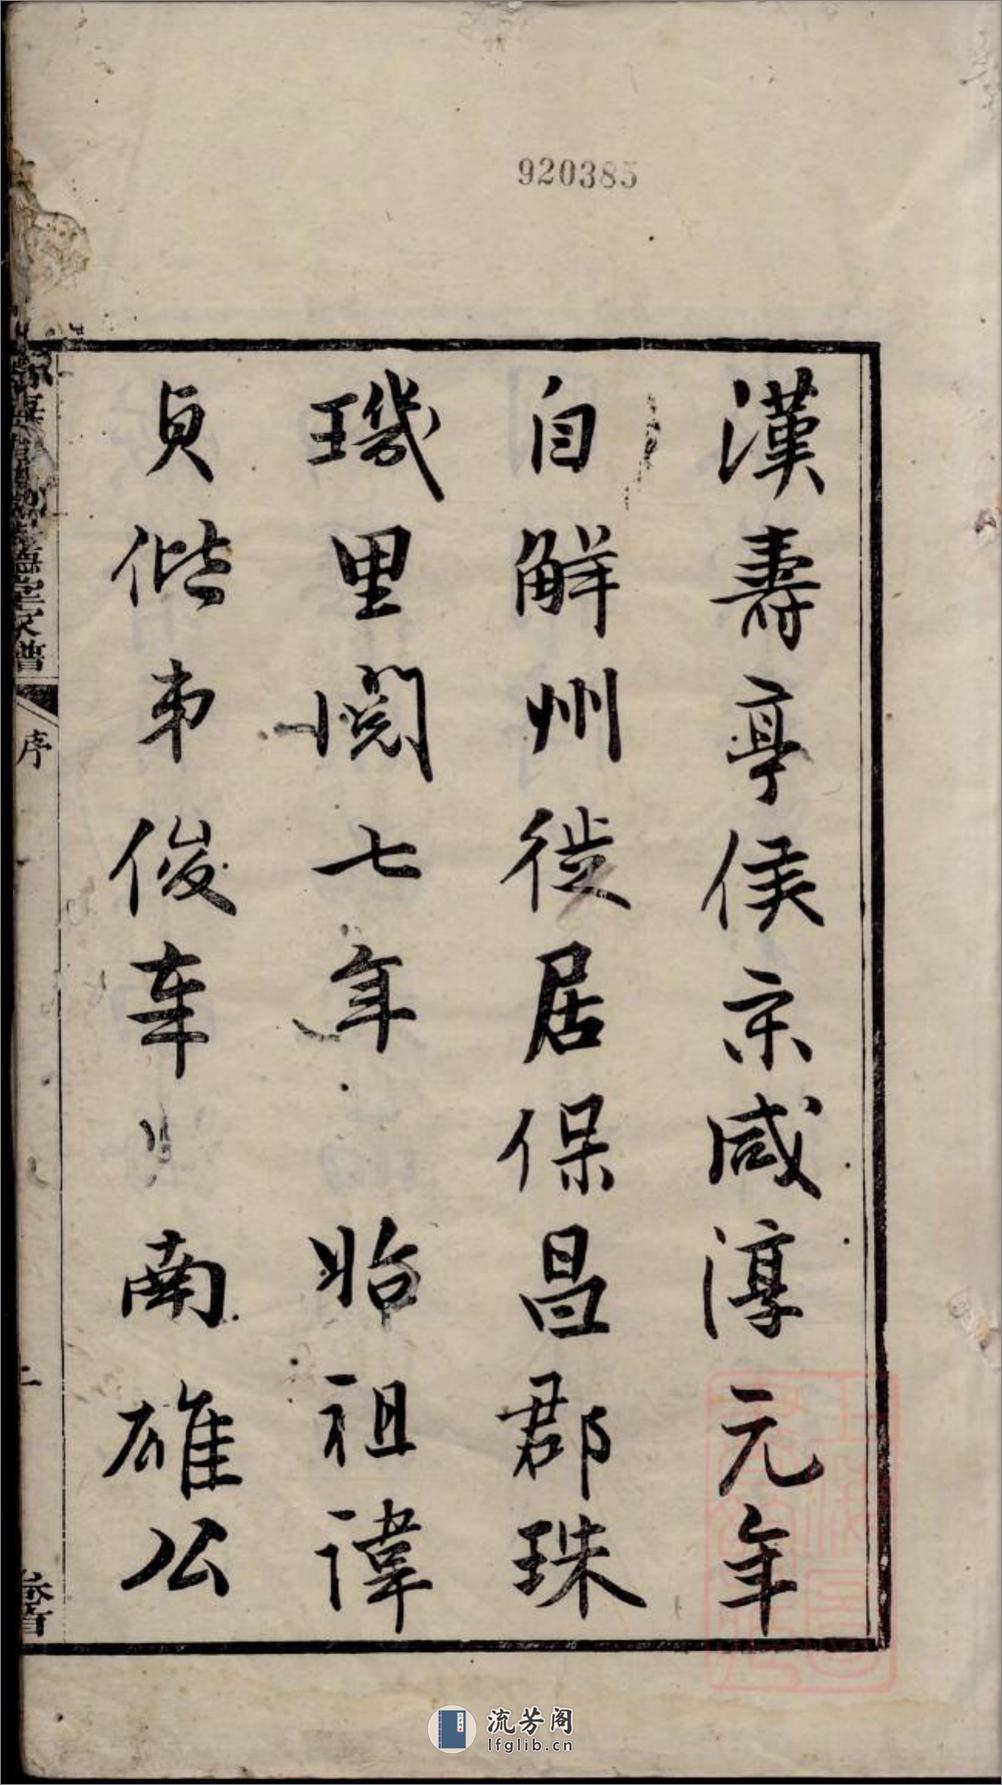 920385
漢壽亭侯宗咸淳元年
自解州徙居保昌郡珠
璣里閱七年 始祖諱
貞偕弟俊車 南雄公
家譜
序
二
卷首
流芳阁
lfglib.cn